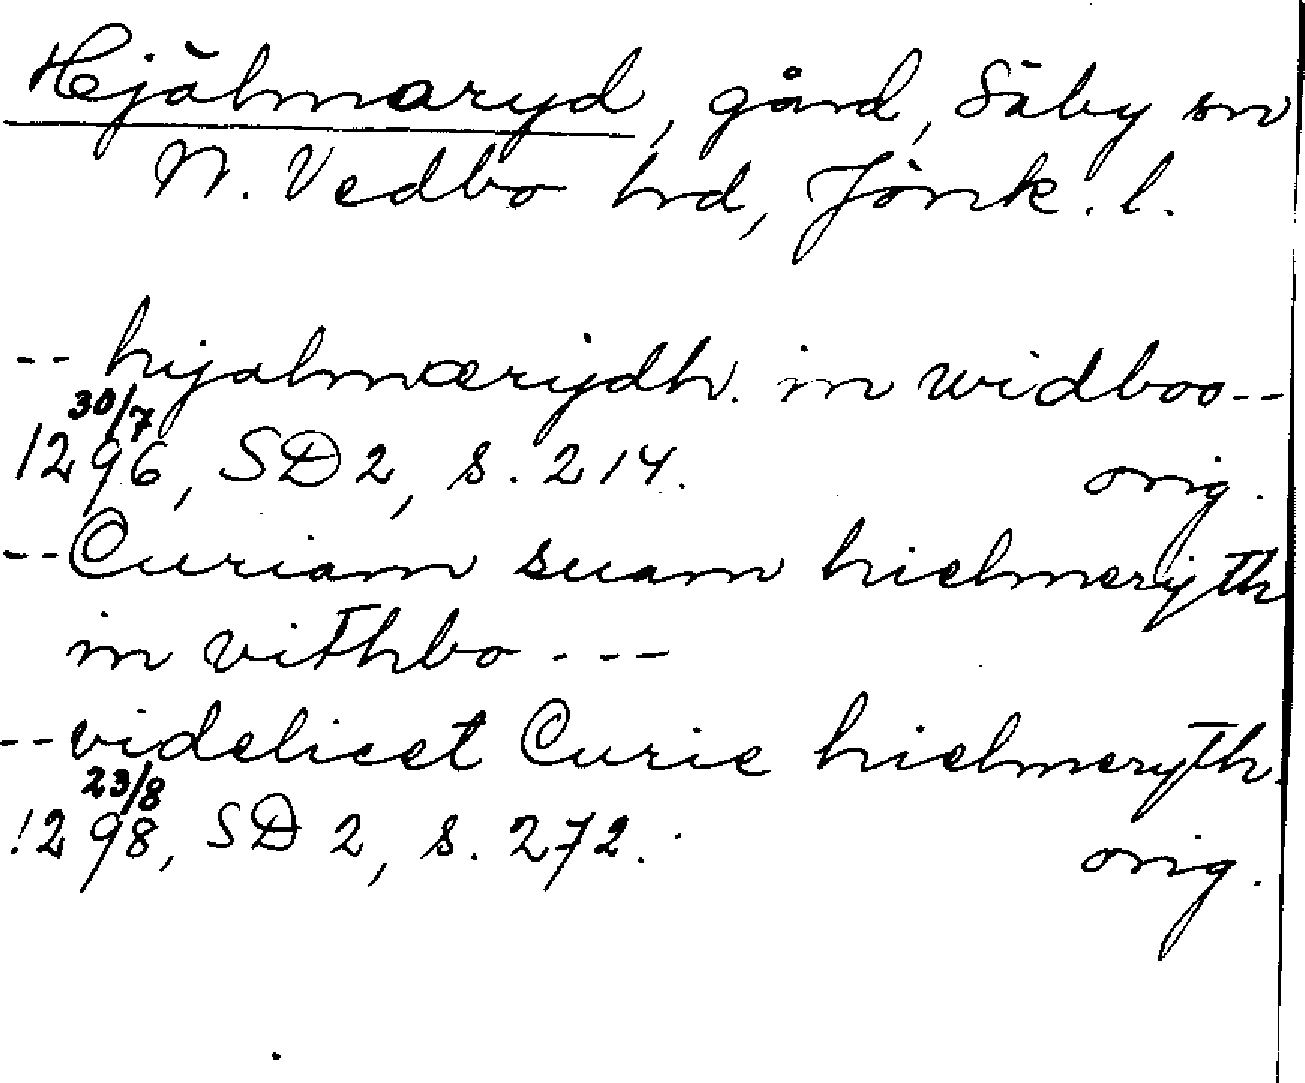 Hjälmaryd, gård, Säby sn
N. Vedbo hrd, Jönk. l.
-- hijalmærijdh. in widboo--
30/7
1296, SD 2, s. 214. orig.
-- Curiam suam hielmerijth
in vithbo ---
-- videlicet Curie hielmeryth.
23/8
1298, SD 2, s. 272. orig.